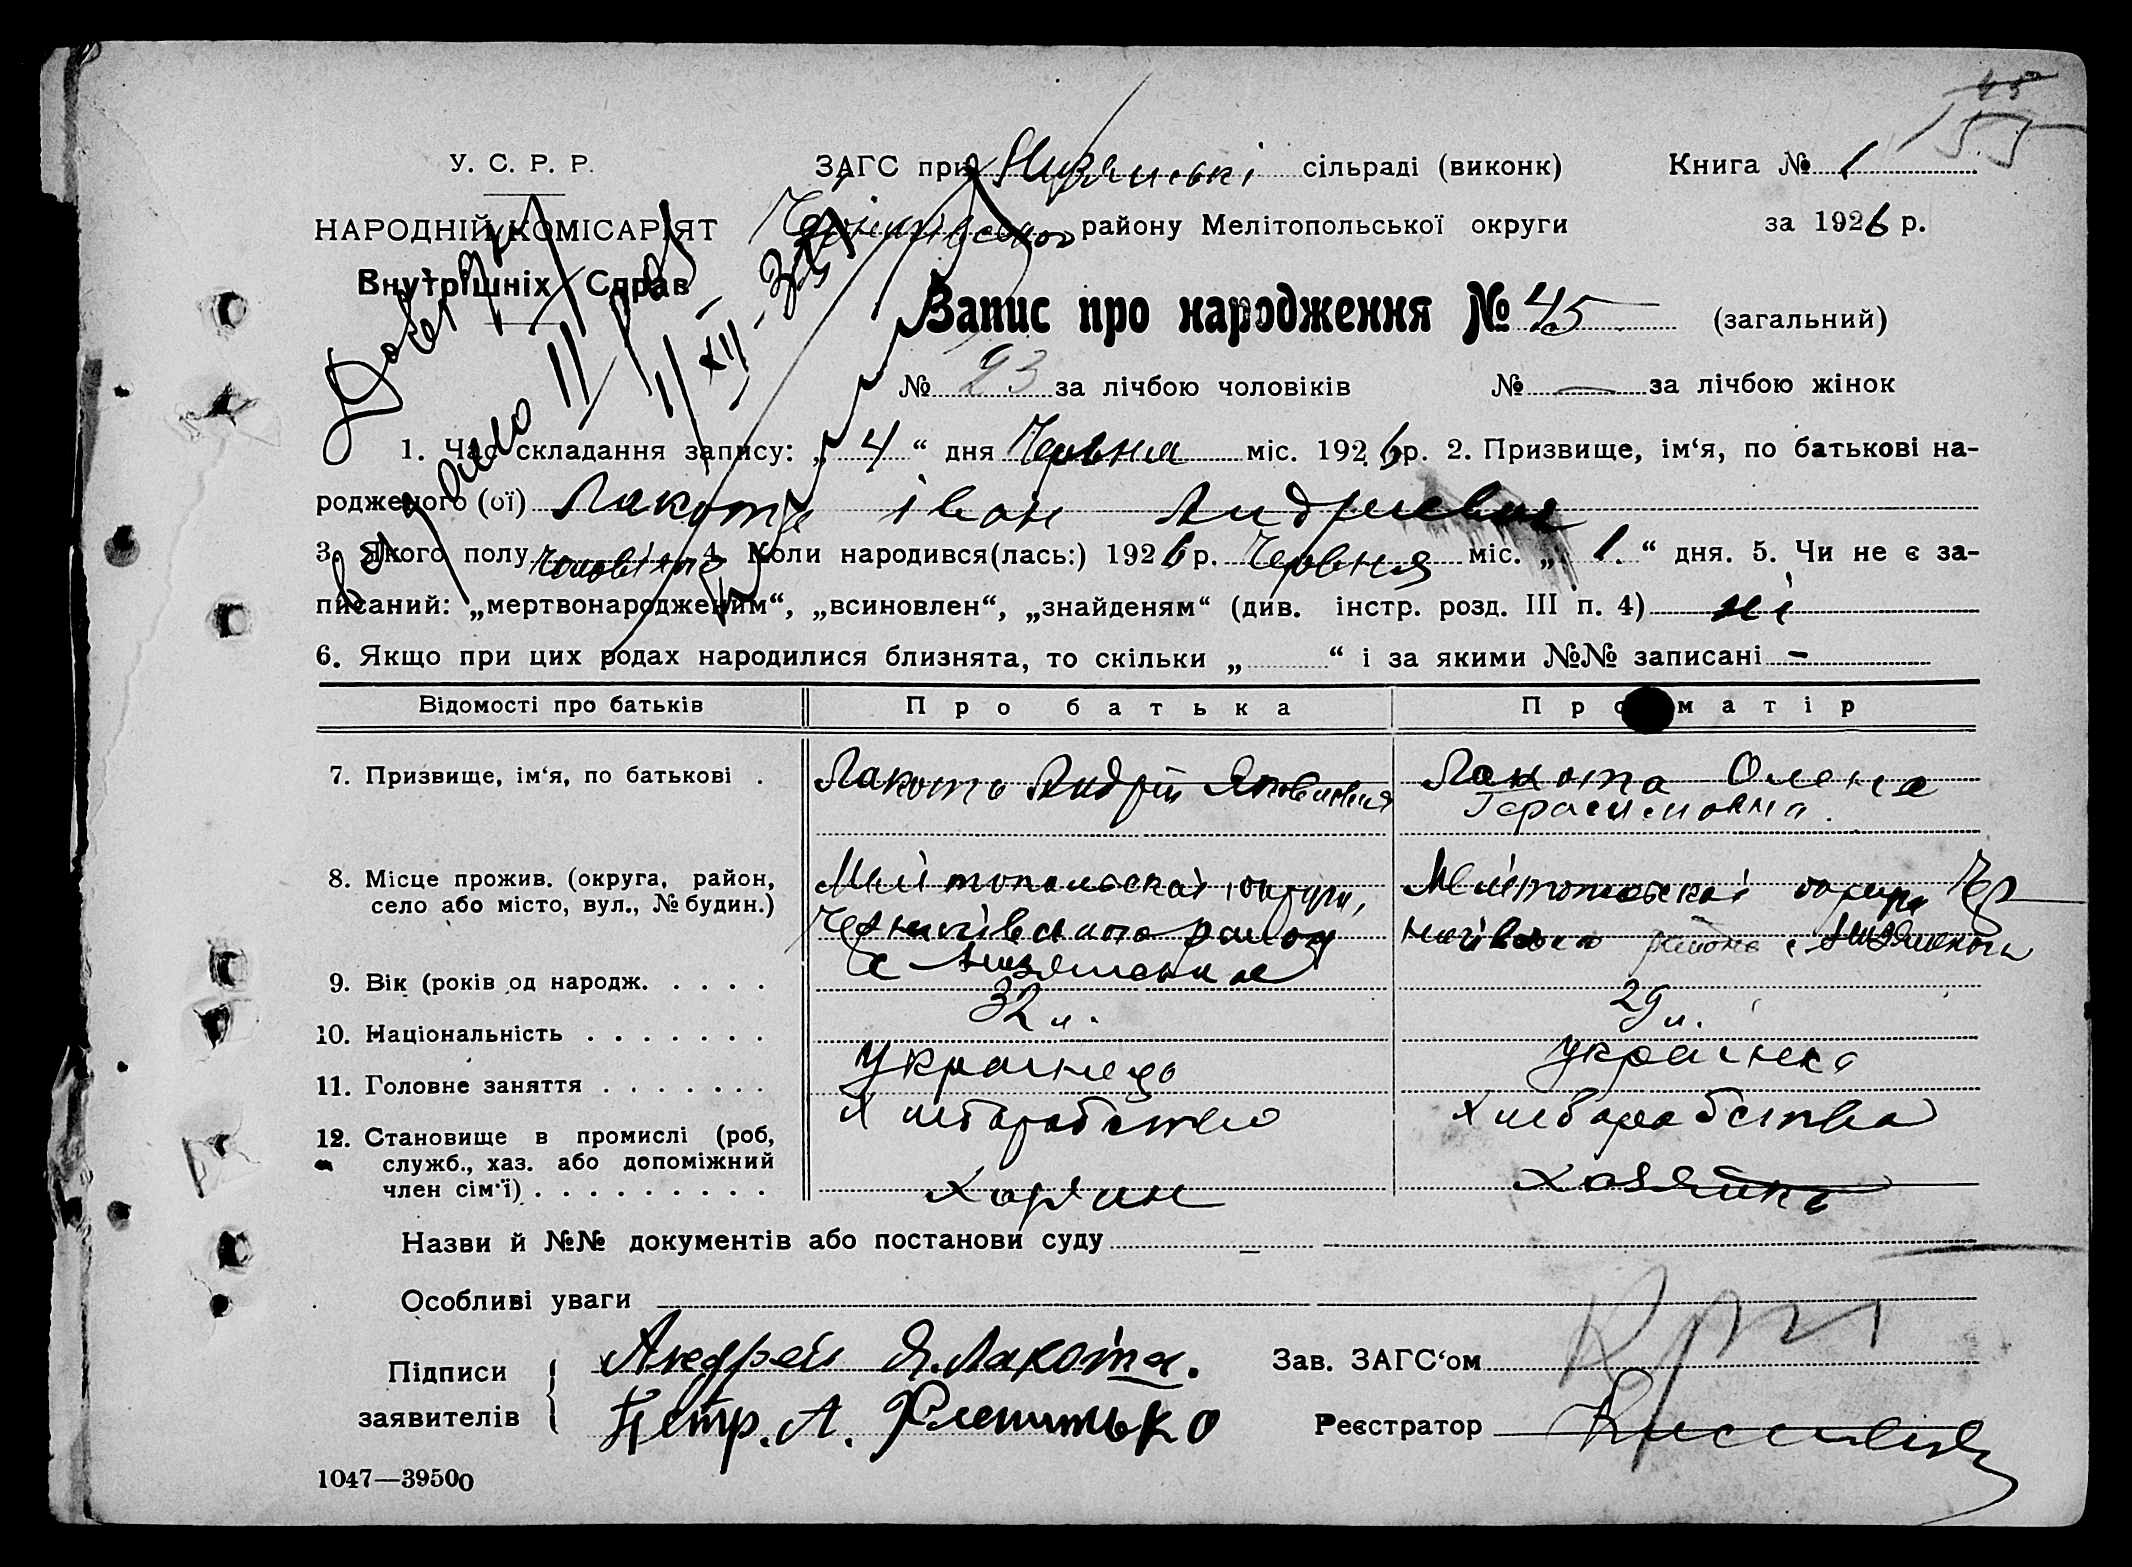 У. С. Р. Р.
НАРОДНІЙ КОМІСАРІЯТ
Внутрішніх Справ
ЗАГС при сільраді (виконк)
Чернігівського району Мелітопольської округи
Книга № 1
за 1926 р.
45
Запис про народження № 45 (загальний)
№ 23 за лічбою чоловіків № — за лічбою жінок
1. Час складання запису: „ 4 “ дня Червня міс. 1926 р. 2. Призвище, ім‘я, по батькові на-
родженого (ої) Лакота іван Андреевич
3. Якого полу 4. Коли народився(лась:) 1926 р. Червня міс. „ 1. “ дня. 5. Чи не є за-
писаний: „мертвонародженим“, „всиновлен“, „знайденям“ (див. інстр. розд. III п. 4) ні
6. Якщо при цих родах народилися близнята, то скільки „ “ і за якими №№ записані –
Відомості про батьків Про батька Про матір
7. Призвище, ім‘я, по батькові . Лакота Андрій Лакота Олена
Герасимовна.
8. Місце прожив. (округа, район, Мелітопольскоі округи, Мелітопольскоі округи Чер
село або місто, вул., № будин.) Чернигівського району нигівського района с
9. Вік (років од народж. . . . . 32 л. 29 л.
10. Національність . . . . . . . Украінець Украінка
11. Головне заняття . . . . . . . Хліборобство хліборобства
12. Становище в промислі (роб,
служб., хаз. або допоміжний
член сім‘ї) . . . . . . . . . Хазяин Хозяйка
Назви й №№ документів або постанови суду –
Особливі уваги
Підписи Андрей Я. Лакота. Зав. ЗАГС‘ом
заявителів Петр. А. Реєстратор
1047—39500